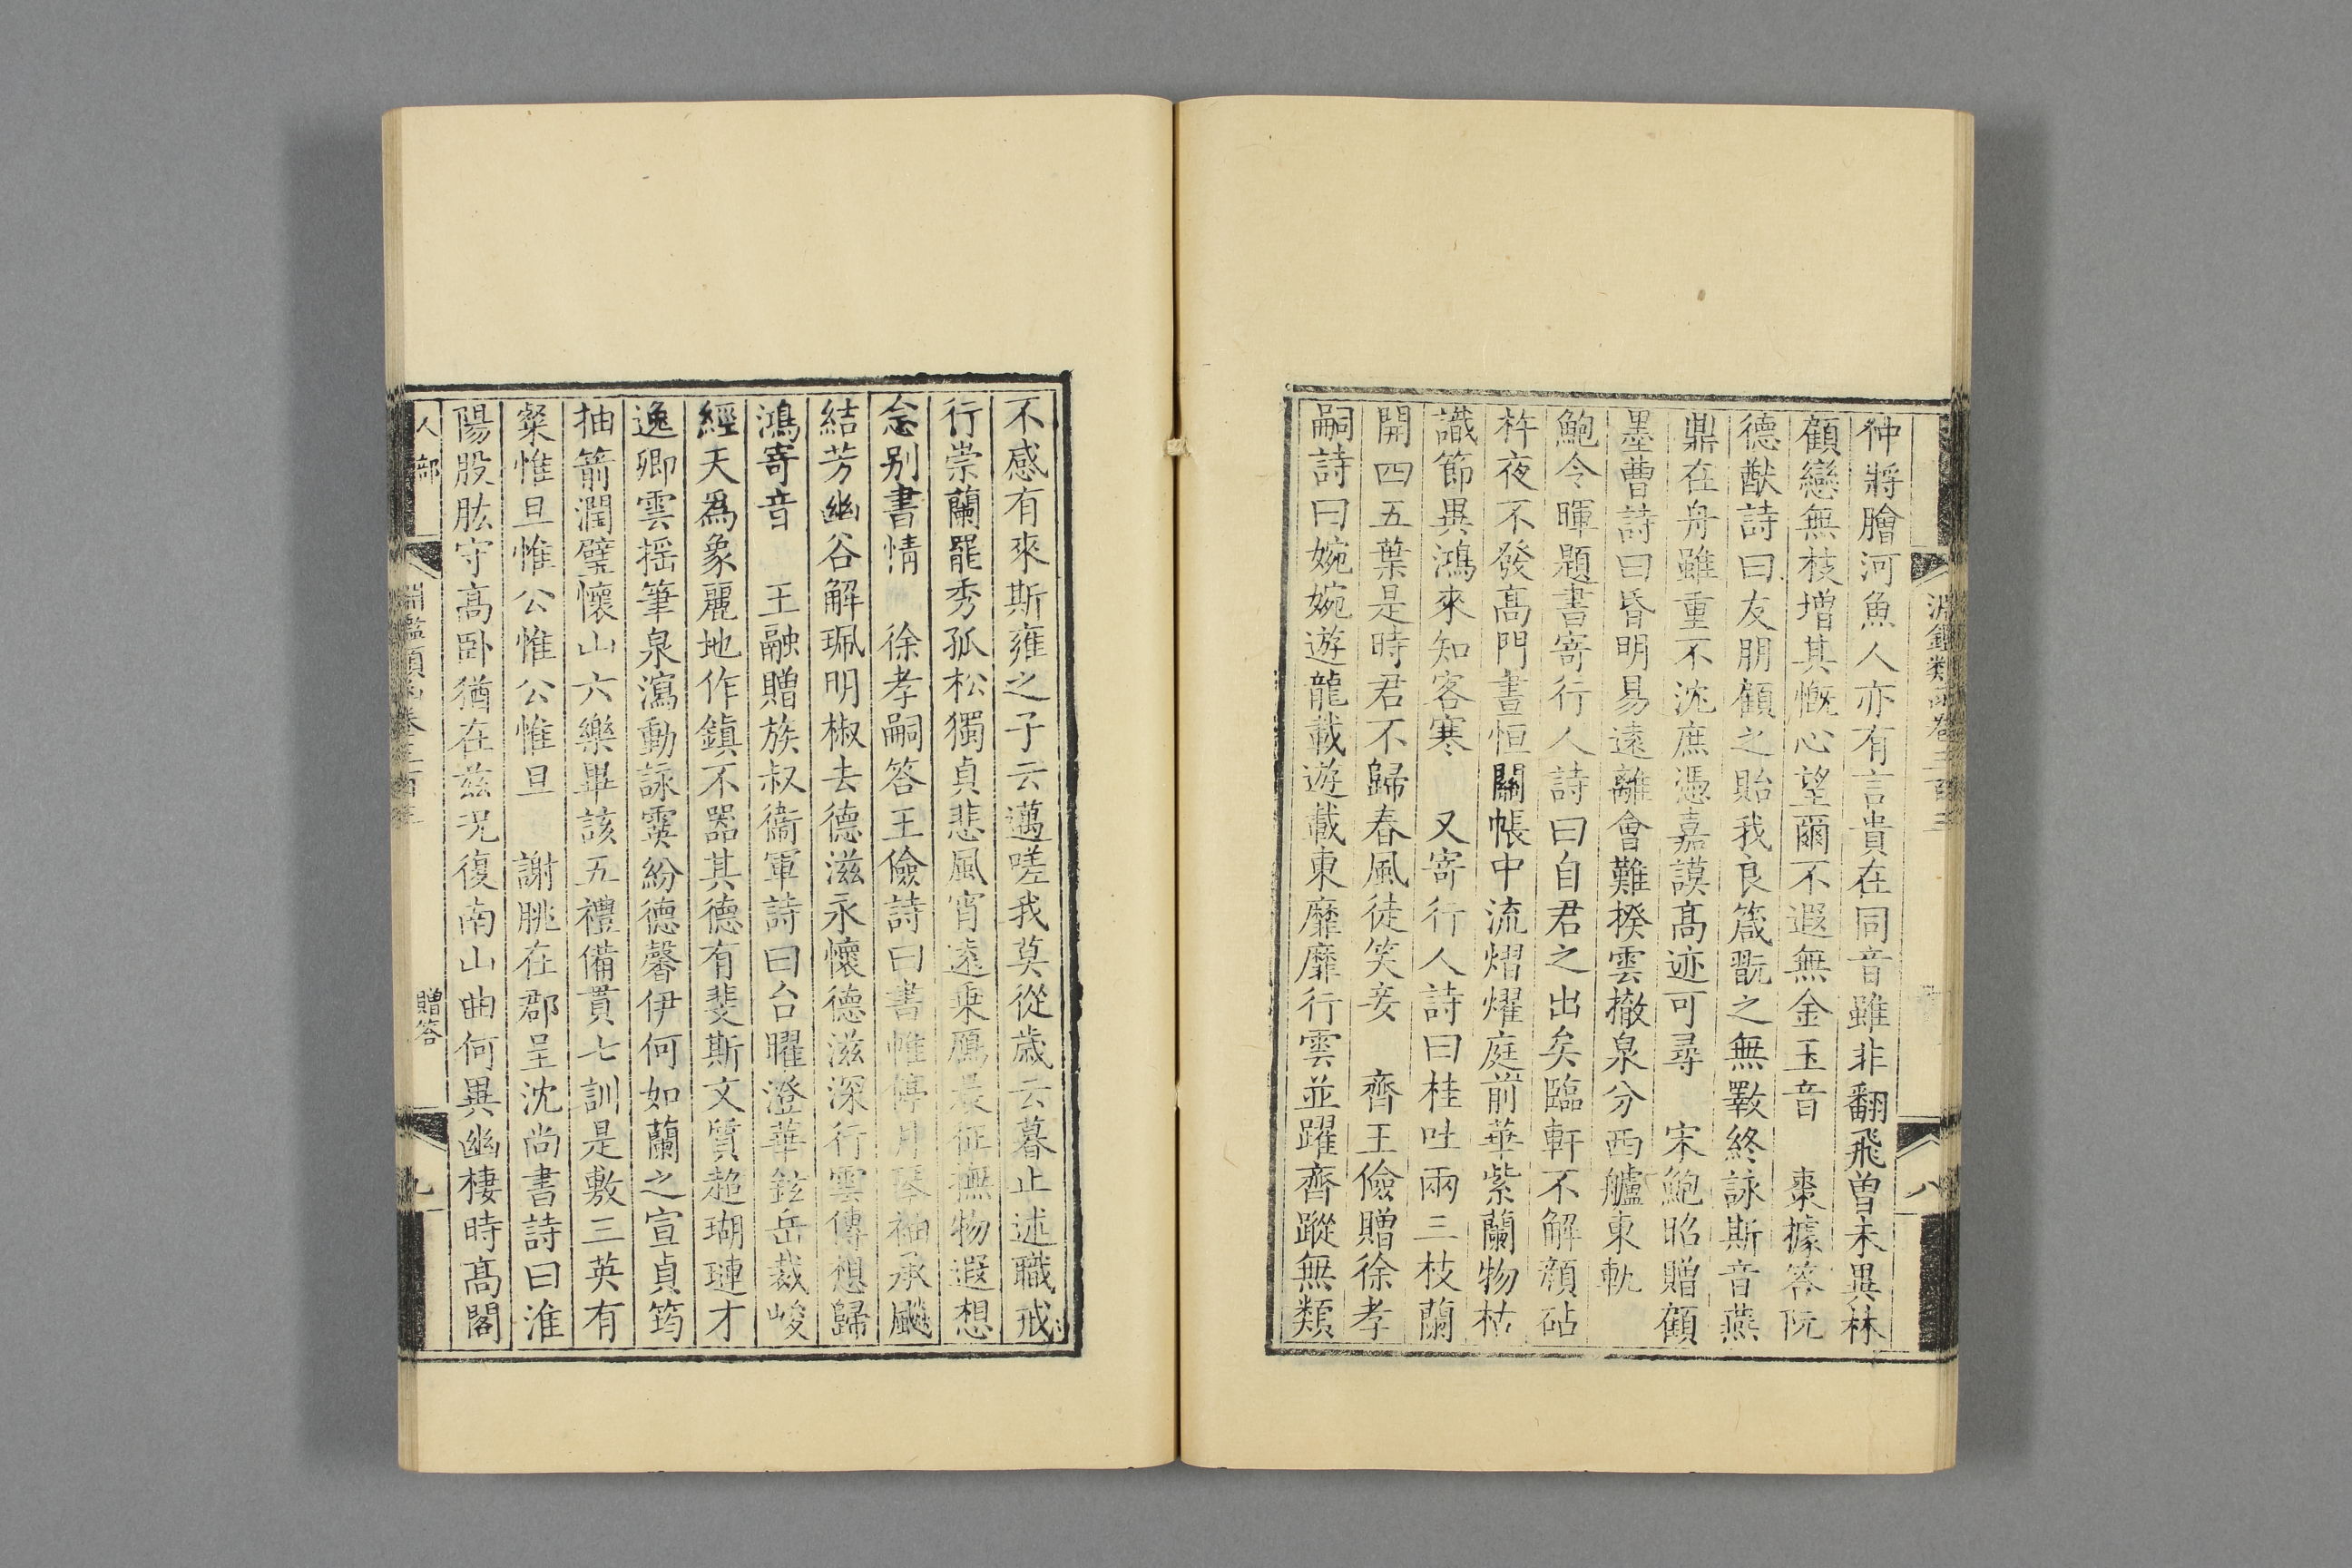 淵鑑類函卷三百三
八
仲將膾河魚人亦有言貴在同音雖非翻飛曾未異林
顧戀無枝增其慨心望爾不遐無金玉音　棗據答阮
德猷詩曰友朋顧之貽我良箴翫之無斁終詠斯音燕
鼎在舟雖重不沈庶憑嘉謨高迹可尋　宋鮑昭贈顧
墨曹詩曰昏明易遠離會難揆雲撤泉分西艫東軌
鮑令暉題書寄行人詩曰自君之出矣臨軒不解顏砧
杵夜不發高門晝恒關帳中流熠燿庭前華紫蘭物枯
識節異鴻來知客寒　又寄行人詩曰桂吐兩三枝蘭
開四五葉是時君不歸春風徒笑妾　齊王儉贈徐孝
嗣詩曰婉婉遊龍載遊載東靡靡行雲並躍齊蹤無類
不感有來斯雍之子云邁嗟我莫從歲云暮止述職戒
行崇蘭罷秀孤松獨貞悲風宵遠乘鴈晨征撫物遐想
念別書情　徐孝嗣答王儉詩曰書帷停月琴袖承飈
結芳幽谷解珮明椒去德滋永懷德滋深行雲傳想歸
鴻寄音　王融贈族叔衞軍詩曰台曜澄華鉉岳裁峻
經天爲象麗地作鎮不器其德有斐斯文質超瑚璉才
逸卿雲揺筆泉瀉動詠雲紛德馨伊何如蘭之宣貞筠
抽箭潤璧懷山六樂畢該五禮備貫七訓是敷三英有
粲惟旦惟公惟公惟旦　謝朓在郡呈沈尚書詩曰淮
陽股肱守高卧猶在兹况復南山曲何異幽棲時高閣
人部
淵鑑類函卷三百三
贈答
九